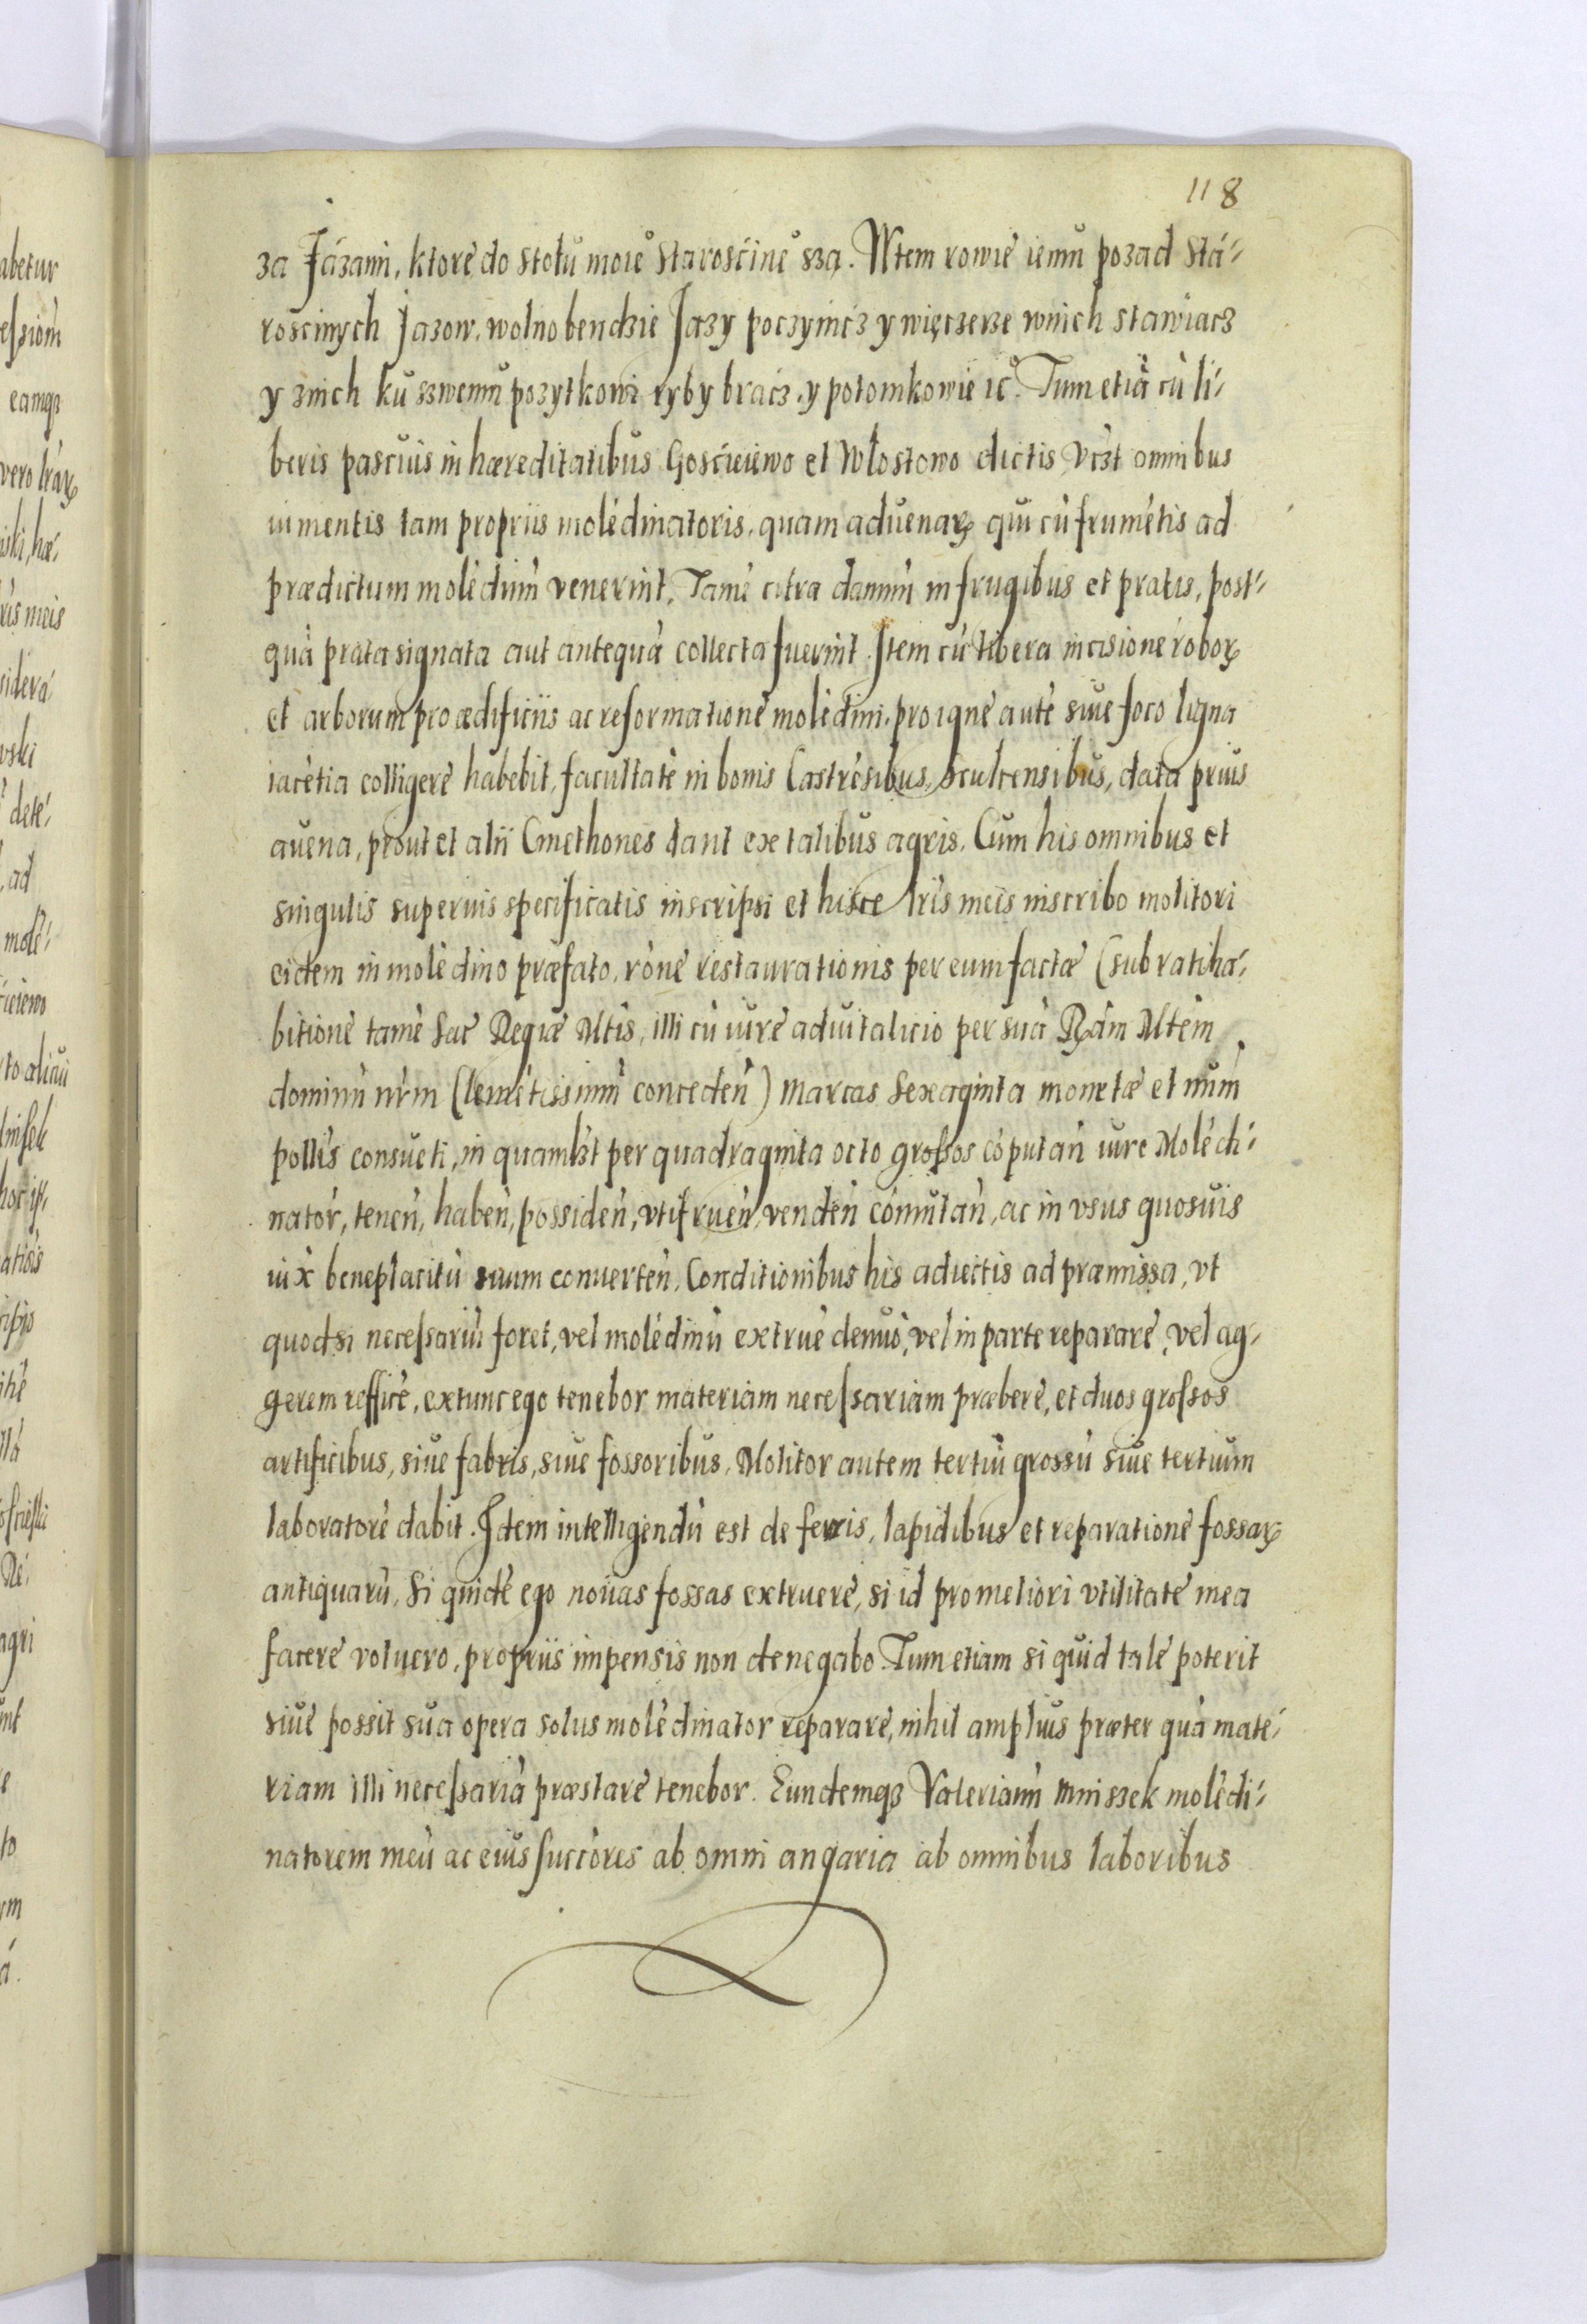 118
za Jázami, ktore do stołu moieº Starościneº szą. Wtem rowie iemu pozad Stá-
rościnych Jazow, wolno bendzie Jazy poczynicz y więczerze wnich stawiacz
y znich ku szwemu pozytkowi ryby bracz, y potomkowie icº. Tum etiā cū li-
beris pascuis in hæreditatibus Gościeiewo et Włostowo dictis, vczt omnibus
iumentis tam propriis molēdinatoris, quam aduenaꝝ qui cū frumētis ad
prædictum molēdinū venerint, Tamē citra damnū in frugibus et pratis, post-
quā prata signata aut antequā collecta fuerint. Item cū libera incisione roboꝝ
et arborum pro ædificiis ac reformatione molēdini, pro igne autē siue foco ligna
iacētia colligere habebit, facultatē in bonis Castrēsibus, Scultensibus, data prius
auena, prout et alii Cmethones dant ex talibus agris. Cum his omnibus et
singulis superius specificatis inscripsi et hisce lris meis inscribo molitori
eidem in molēdino præfato, rōne restaurationis per eum factæ (sub ratiha-
bitione tamē Sac Regiæ Mtis, illi cū iure aduitalicio per suā Rām Mtēm
dominū nr̄m Clemētissimū conceden̄) Marcas Sexaginta monetæ et num̄
pollis consueti, in quamlz̄t per quadraginta octo grossos cōputan̄ iure Molēdi-
nator̄, tenen̄, haben̄, possiden̄, vtifruen̄, venden̄ cōmutan̄, ac in vsus quosuis
iux̄ beneplacitū suum conuerten̄. Conditionibus his adiectis ad præmissa, vt
quodsi necessariū foret, vel molēdinū extruē denuò, vel in parte reparare, vel ag-
gerem refficē, extunc ego tenebor materiam necessariam præbere, et duos grossos
artificibus, siue fabris, siue fossoribus, Molitor autem tertiū grossū siue tertium
laboratorē dabit. Idem intelligendū est de ferris, lapidibus et reparatione fossaꝝ
antiquarū, Si quidē ego nouas fossas extruere, si id pro meliori vtilitate mea
facere voluero, propriis impensis non denegabo. Tum etiam si quid tale poterit
siue possit sua opera solus molēdinator reparare, nihil amplius præter quā mate-
riam illi necessariā præstare tenebor. Eundemqꝫ Valerianū Mniszek molēdi-
natorem meū ac eius succ̄ores ab omni angaria ab omnibus laboribus